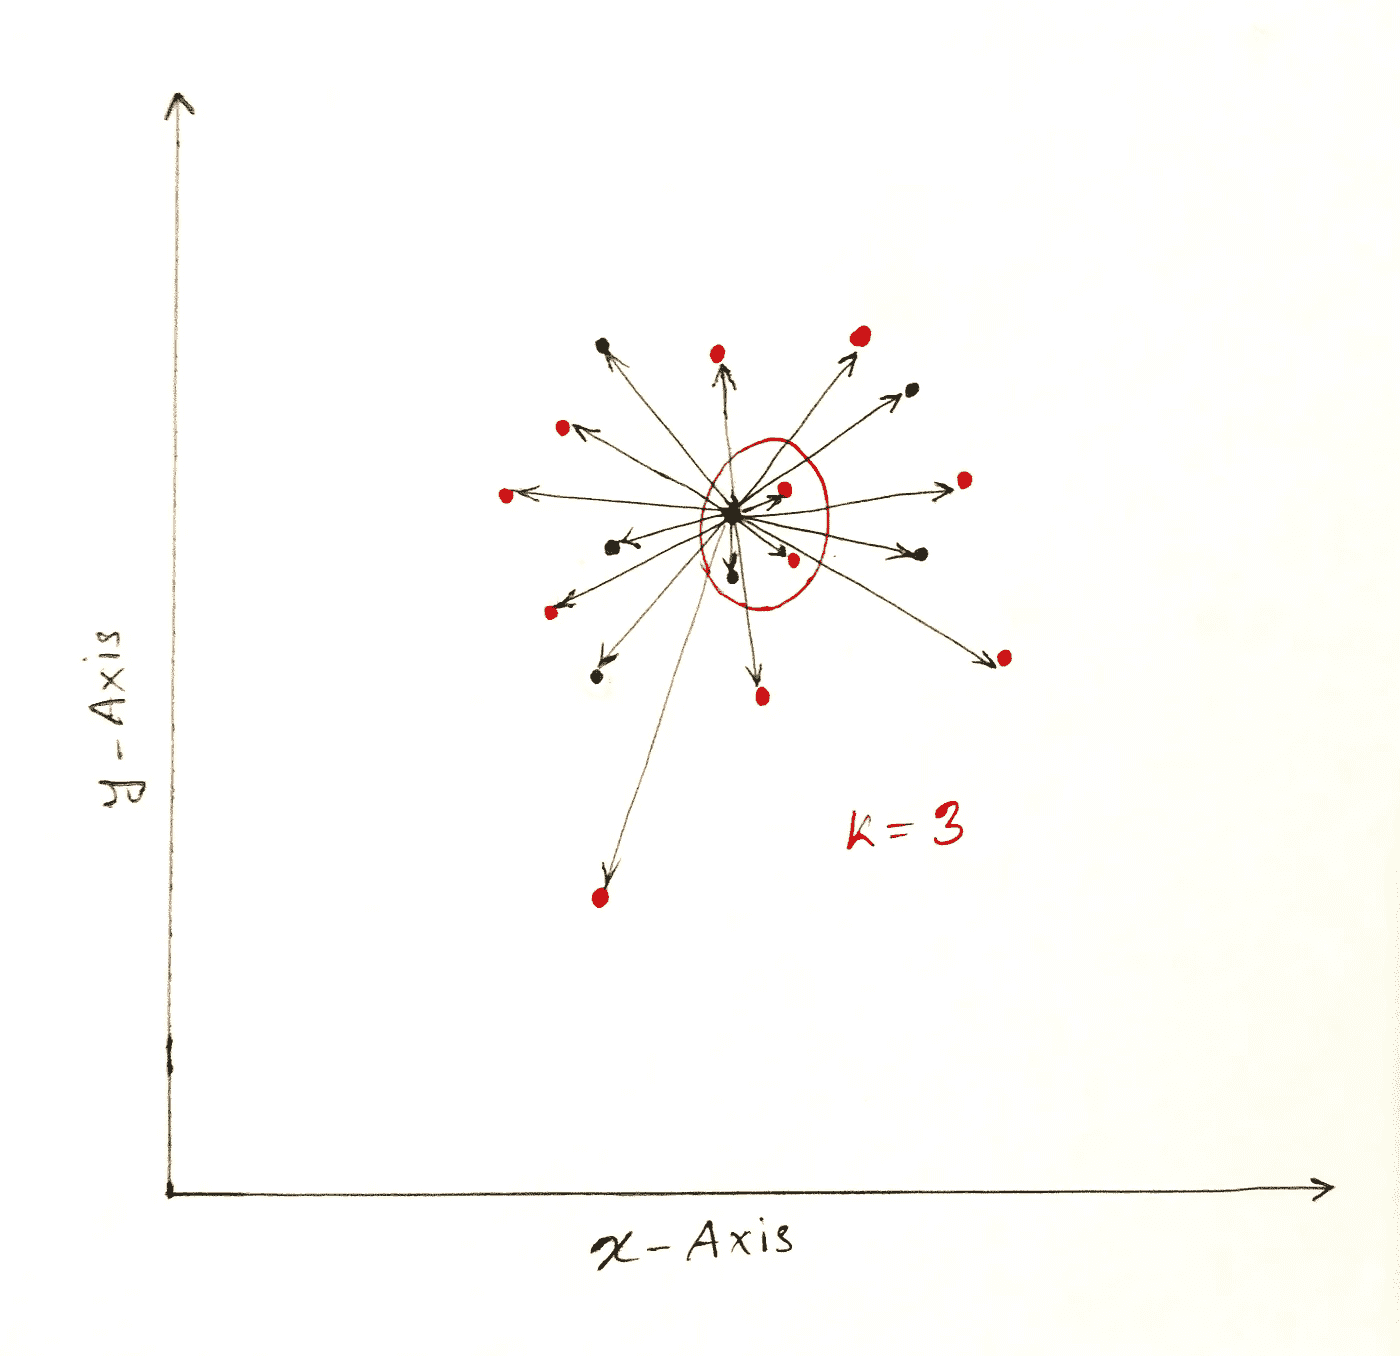 y-Axis
K = 3
x-Axis